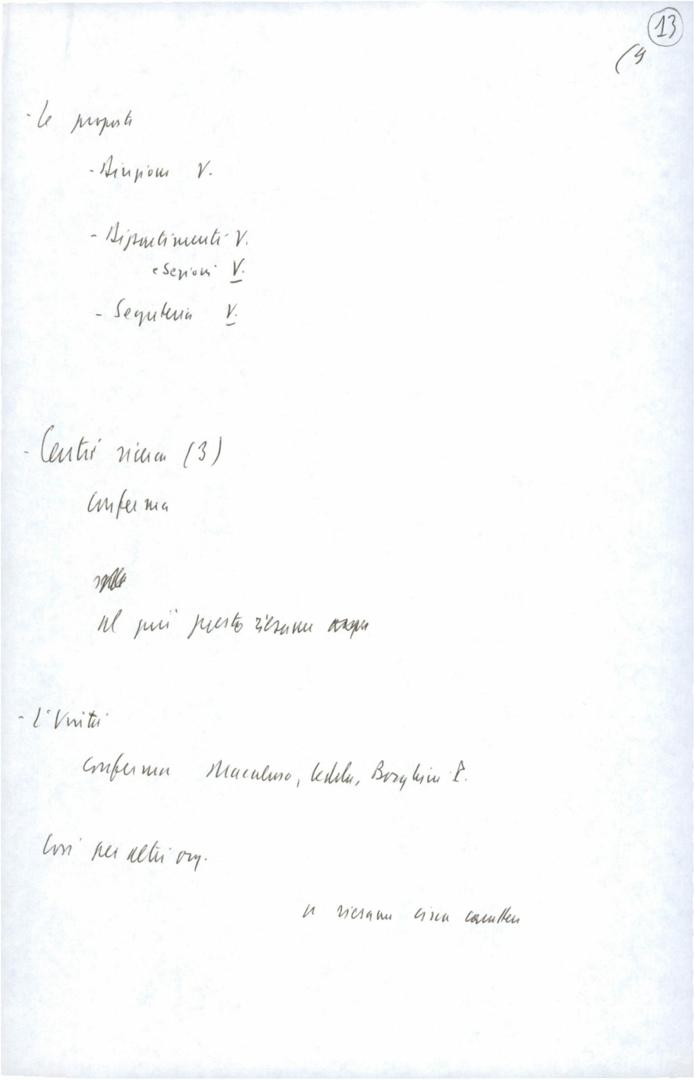 13
- Le proposte
- Direzione V.
- Dipartimenti V.
e Sezioni V.
- Segreteria V.
- Centri ricerca (3)
Conferma
al più presto riesame
- L'Unità
Conferma Macaluso, Ledda, Borghini P.
Così per altri org.
riesame circa carattere